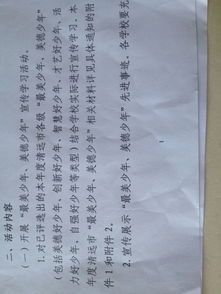 二、活动内容
（一）开展“最美少年、美德少年”宣传学习活动。
1.对已评选出的本年度清远市各级“最美少年、美德少年”
（包括美德好少年、创新好少年、智慧好少年、才艺好少年、活
力好少年、自强好少年等类型）结合学校实际进行宣传学习。本
年度清远市“最美少年、美德少年”相关材料详见具体通知的附
件 1 和附件 2。
2.宣传展示“最美少年、美德少年”先进事迹。各学校要充